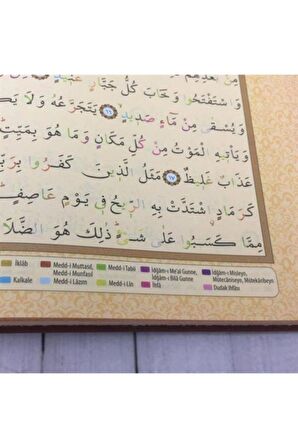 وَاسْتَفْتَحُوا وَخَابَ كُلُّ جَبَّارٍ عَنِيدٍ
وَيُسْقٰى مِنْ مَٓاءٍ صَد۪يدٍۙ ﴿١٦﴾ يَتَجَرَّعُهُ وَلَا يَكَ
وَيَأْت۪يهِ الْمَوْتُ مِنْ كُلِّ مَكَانٍ وَمَا هُوَ بِمَيِّتٍ
عَذَابٌ غَل۪يظٌ ﴿١٧﴾ مَثَلُ الَّذ۪ينَ كَفَرُوا بِرَبِّ
كَرَمَادٍ اشْتَدَّتْ بِهِ الرّ۪يحُ ف۪ي يَوْمٍ عَاصِفٍ
مِمَّا كَسَبُوا عَلٰى شَيْءٍ ذٰلِكَ هُوَ الضَّلَا
İklâb
Medd-i Muttasıl, Medd-i Munfasıl
Medd-i Tabii
İdğâm-ı Me'al Gunne, İdğâm-ı Bilâ Gunne
İdğâm-ı Misleyn, Mütecâniseyn, Mütekâribeyn
Kalkale
Medd-i Lâzım
Medd-i Lin
İhfâ
Dudak İhfâsı